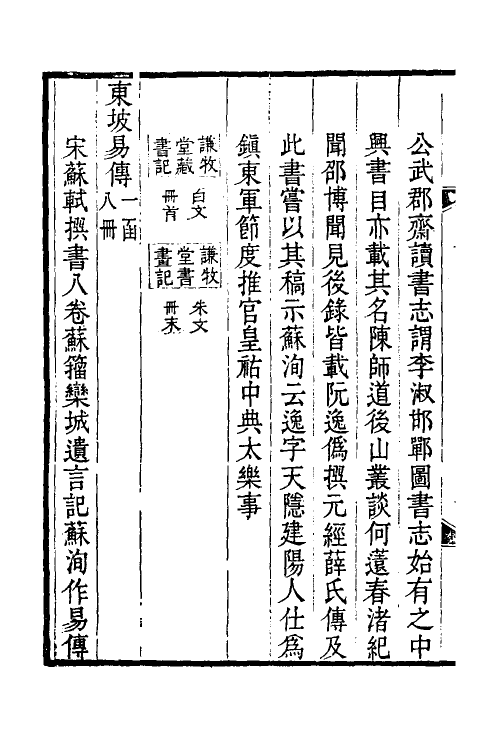 公武郡齋讀書志謂李淑邯鄲圖書志始有之中
興書目亦載其名陳師道後山叢談何薳春渚紀
聞邵博聞見後錄皆載阮逸偽撰元經薛氏傳及
此書嘗以其稿示蘇洵云逸字天隱建陽人仕為
鎮東軍節度推官皇祐中典太樂事
謙牧
堂藏
書記
白文
冊首
謙牧
堂書
畫記
朱文
冊末
東坡易傳
一函
八冊
宋蘇軾撰書八卷蘇籀欒城遺言記蘇洵作易傳